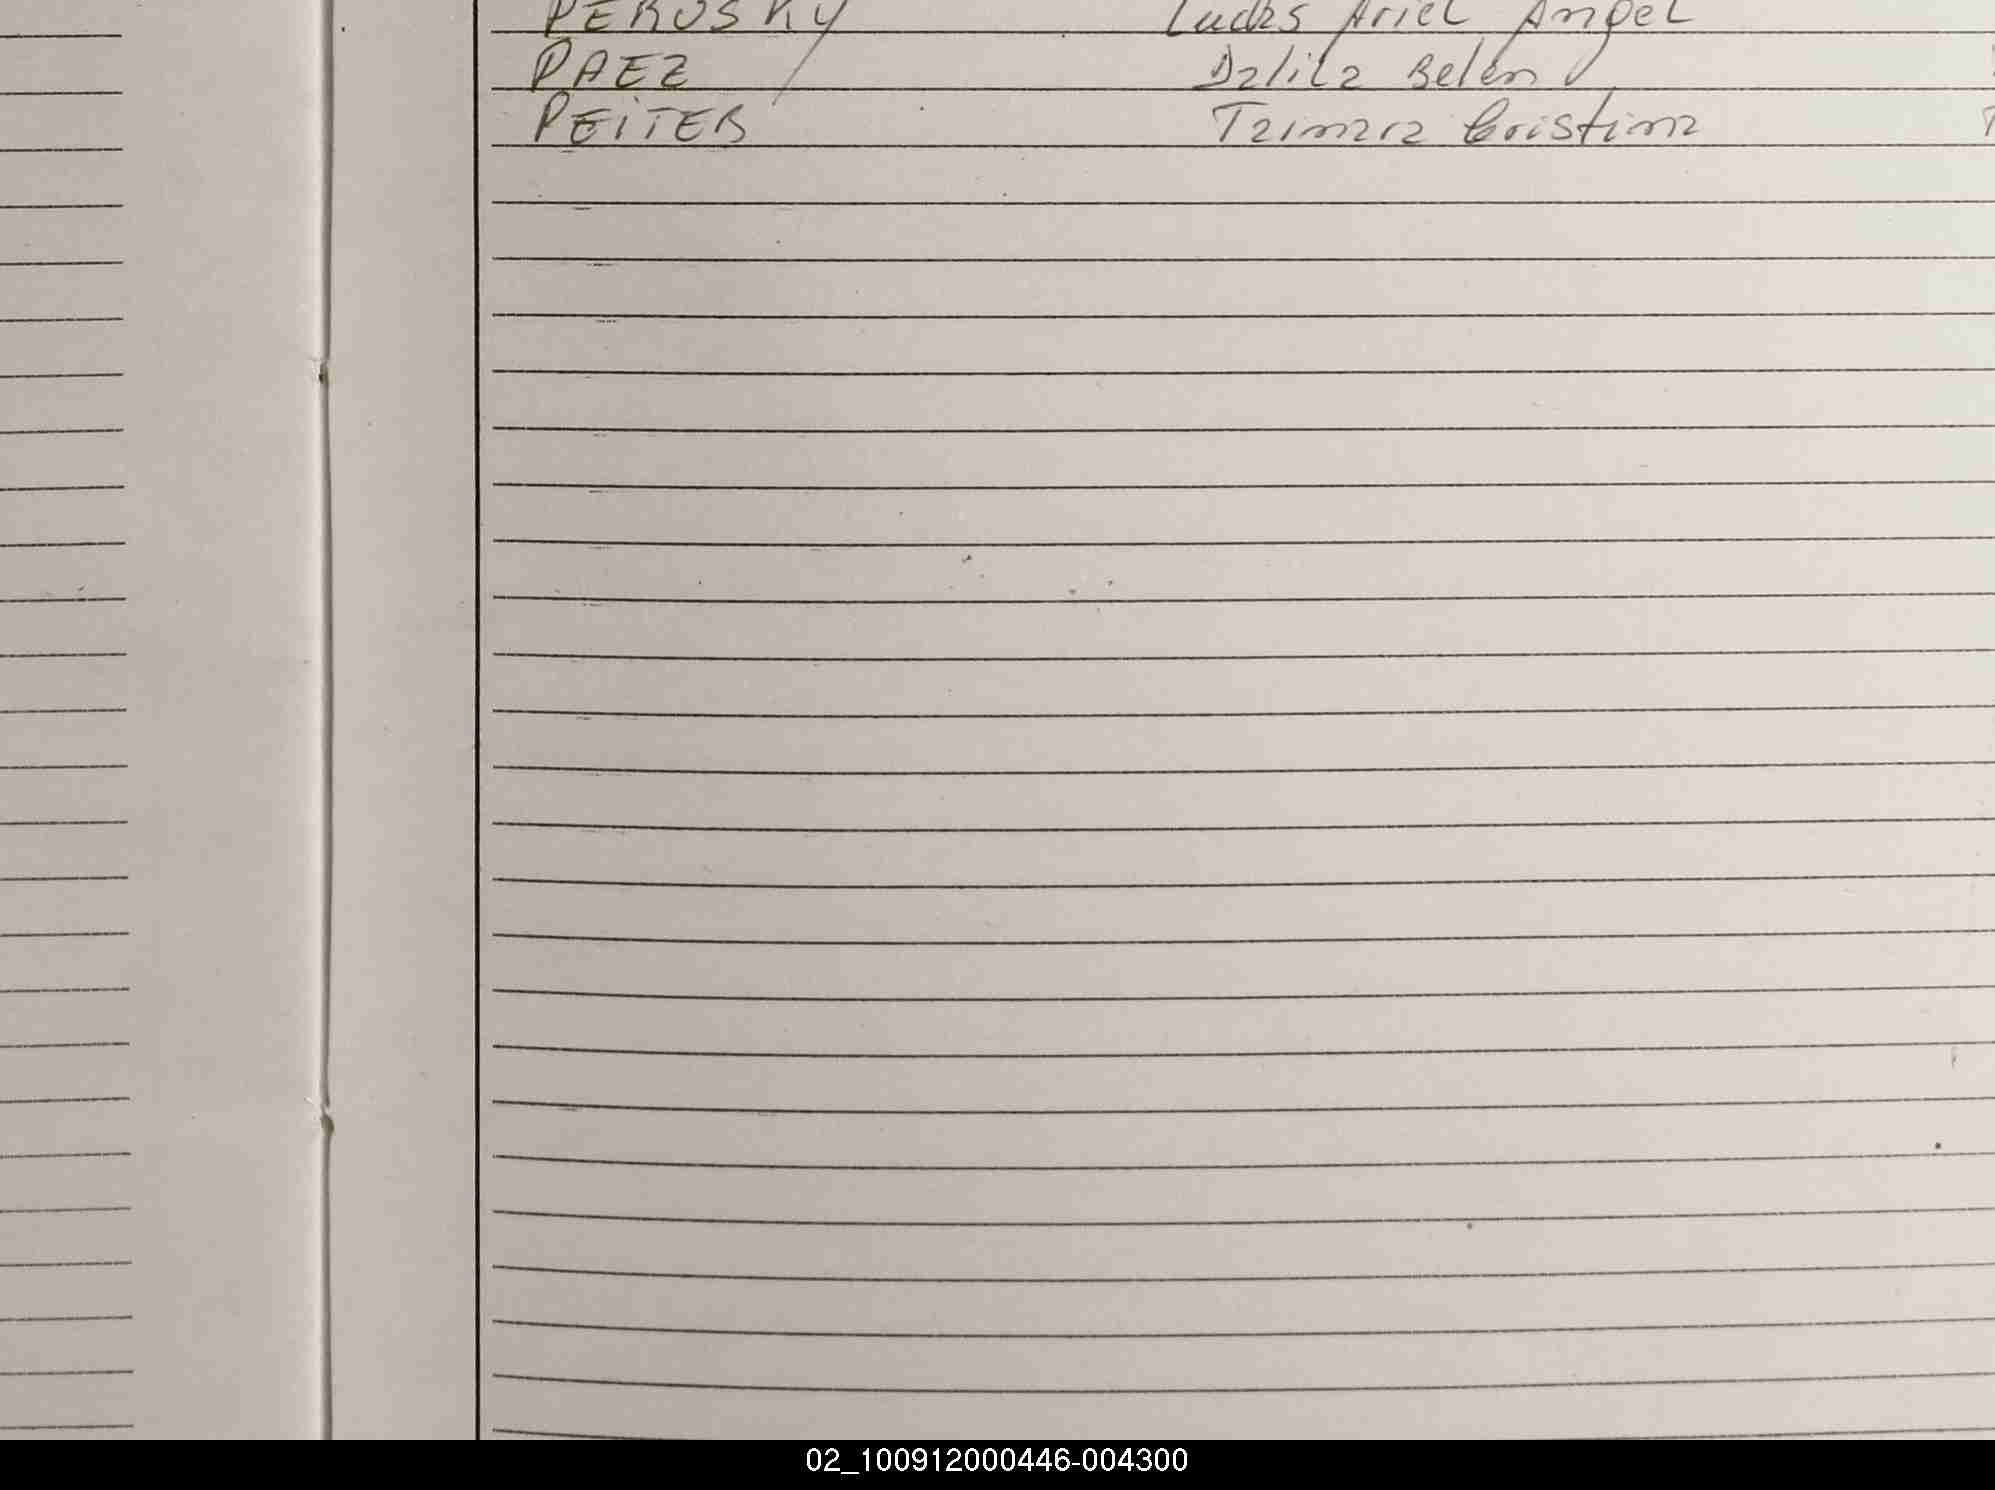 PEROSKY Lucas Ariel Angel
PAEZ Dalila Belén
PEITER Taimara Cristina
02_100912000446-004300